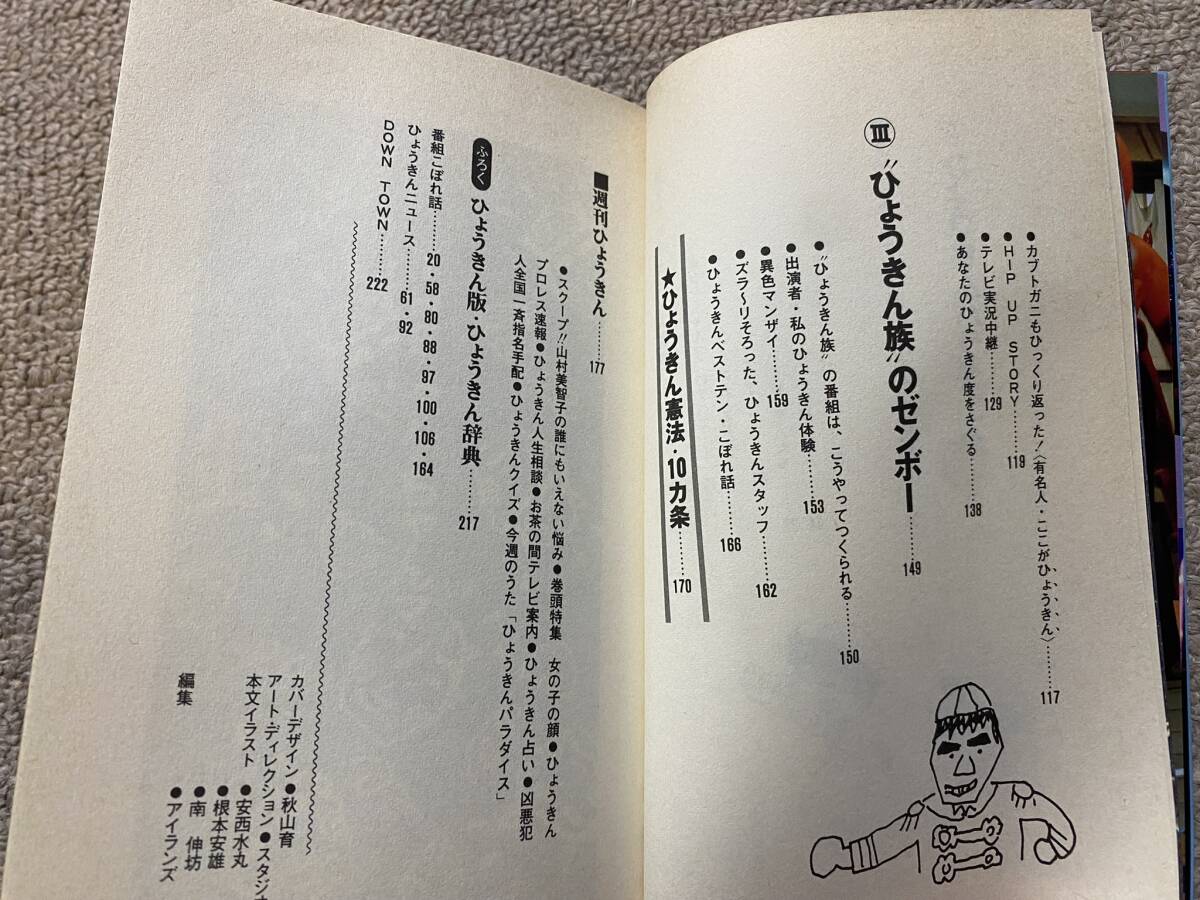 ●カブトガニもひっくり返った!〈有名人・ここがひょうきん〉………117
●HIP UP STORY………119
●テレビ実況中継………129
●あなたのひょうきん度をさぐる………138
Ⅲ “ひょうきん族”のゼンボー………149
●“ひょうきん族”の番組は、こうやってつくられる………150
●出演者・私のひょうきん体験………153
●異色マンザイ………159
●ズラ〜リそろった、ひょうきんスタッフ………162
●ひょうきんベストテン・こぼれ話………166
★ひょうきん憲法・10カ条………170
■週刊ひょうきん………177
●スクープ!!山村美智子の誰にもいえない悩み●巻頭特集 女の子の顔●ひょうきん
プロレス速報●ひょうきん人生相談●お茶の間テレビ案内●ひょうきん占い●凶悪犯
人全国一斉指名手配●ひょうきんクイズ●今週のうた「ひょうきんパラダイス」
ふろく ひょうきん版・ひょうきん辞典………217
番組こぼれ話………20・58・80・88・97・100・106・164
ひょうきんニュース………61・92
DOWN TOWN………222
カバーデザイン●秋山育
アート・ディレクション●スタジオ
本文イラスト●安西水丸
●根本安雄
●南 伸坊
編集●アイランズ